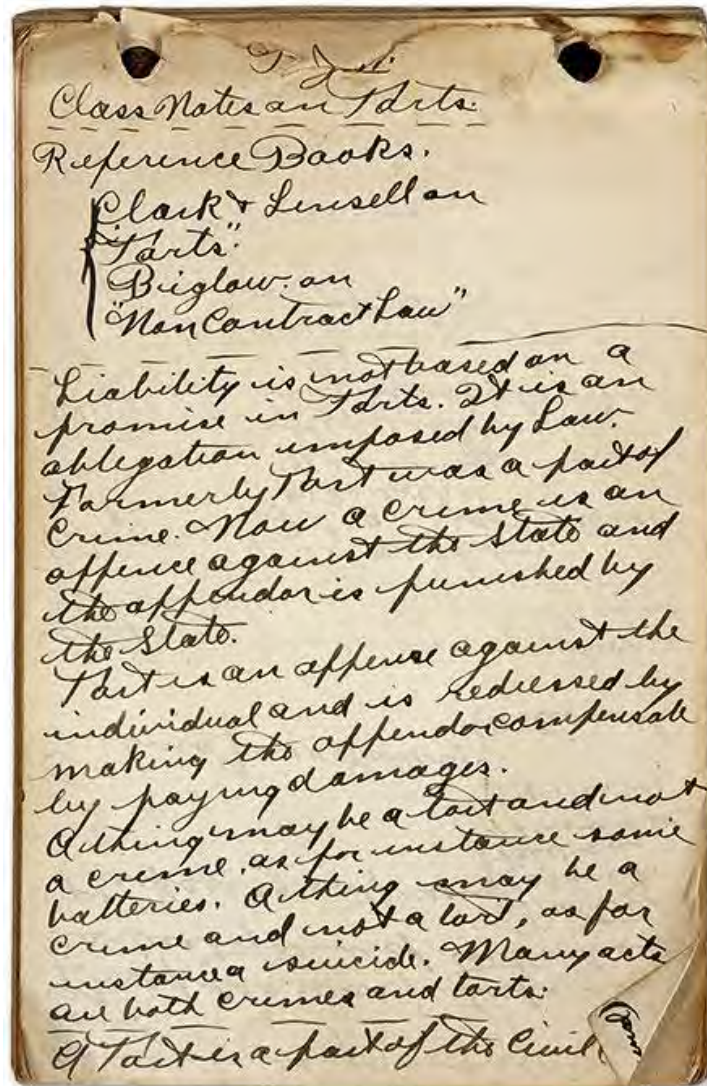 Class Notes on Torts.
Reference Books.
Clark & Linsell on
"Torts".
Biglow. on
"Non Contract Law"
Liability is not based on a
promise in Torts. It is an
obligation imposed by Law.
Formerly Tort was a part of
Crime. Now a crime is an
offence against the State and
the offendor is punished by
the State.
Tort is an offense against the
individual and is redressed by
making the offendor compensate
by paying damages.
A thing may be a tort and not
a crime. as for instance some
batteries. A thing may be a
crime and not a tort, as for
instance a suicide. Many acts
are both crimes and torts.
A Tort is a part of the Civil